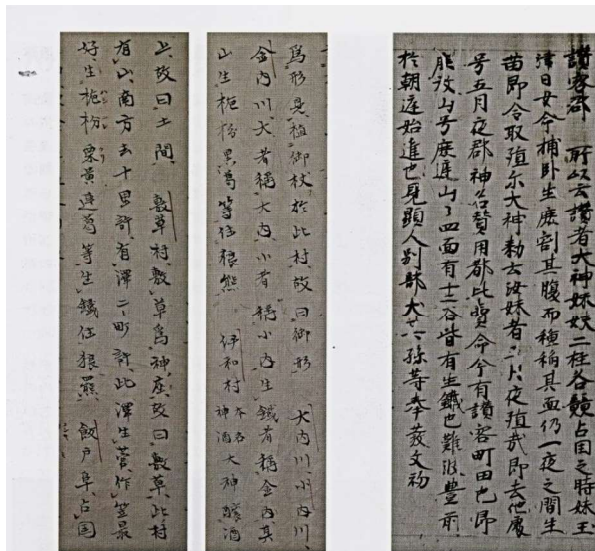 讃容郡 所以云讃者大神妹妋二柱各競占国之時妹玉
津日女命捕卧生鹿割其腹而種稲其血仍一夜之間生
苗即令取殖尓大神勅云汝妹者五月夜殖哉即去他處
号五月夜郡神名賛用都比賣命今有讃容町田也即
鹿放山号鹿庭山々四面有十二谷皆有生鐵也難波豊前
於朝庭始進也見顕人別部犬其孫等奉發之初
爲形見植御杖於此村故曰御形 大内川小内川
金内川大者稱大内小者稱小内生鐵者稱金内其
山生柂枌黒葛等住狼熊 伊和村 本名神酒 大神釀酒
上故曰土間 敷草村敷草爲神座故曰敷草此村
有山南方去十里許有澤二町許此澤生菅作笠最
好生柂枌栗黄連葛等生鐵住狼羆 飯戸阜占国